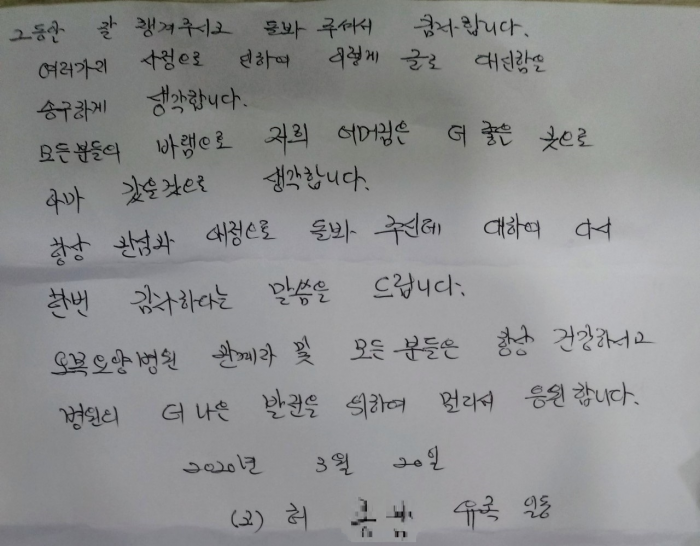 그동안 잘 챙겨주시고 돌봐 주셔서 감사합니다.
여러가지 사정으로 인하여 이렇게 글로 대신함을
송구하게 생각합니다.
모든분들의 바램으로 저희 어머님은 더 좋은 곳으로
아마 갔을것으로 생각합니다.
항상 관심과 애정으로 돌봐 주신데 대하여 다시
한번 감사하다는 말씀을 드립니다.
오복요양병원 관계자 및 모든 분들은 항상 건강하시고
병원의 더 나은 발전을 위하여 멀리서 응원합니다.
2020년 3월 20일
(고) 허 유족 일동